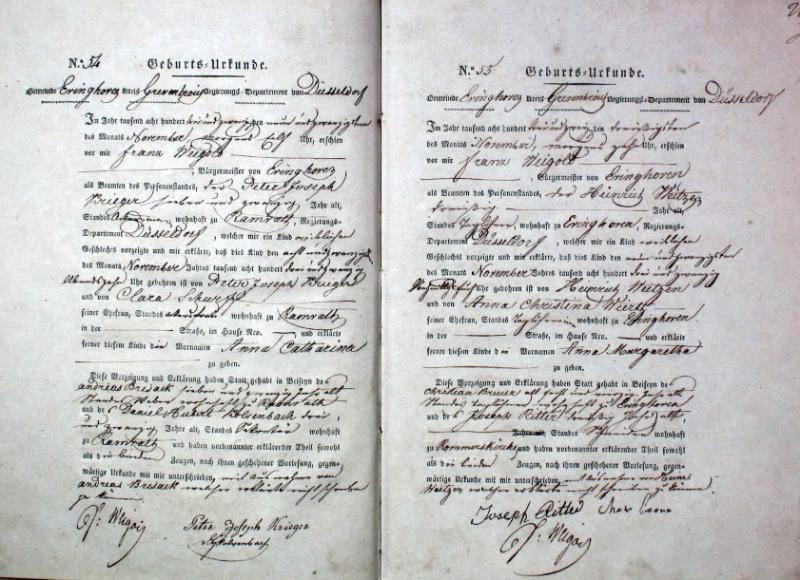 N.º 54 Geburts-Urkunde.
Gemeinde Eringhoven Kreis Grevenbroich Regierungs-Departement von Düsseldorf
Im Jahr tausend acht hundert drei und zwanzig den neun und zwanzigsten
des Monats November morgens elf Uhr, erschien
vor mir Franz Weigold
, Bürgermeister von Eringhoven
als Beamten des Personenstandes, der Peter Joseph
Krieger sieben und zwanzig Jahr alt,
Standes wohnhaft zu Ramrath, Regierungs-
Departement Düsseldorf, welcher mir ein Kind weiblichen
Geschlechts vorzeigte und mir erklärte, daß dies Kind den acht und zwanzigsten
des Monats November Jahres tausend acht hundert drei und zwanzig
Abends zehn Uhr gebohren ist von Peter Joseph Krieger
und von Clara
seiner Ehefrau, Standes wohnhaft zu Ramrath
in der Straße, im Hause Nro. und erklärte
ferner diesem Kinde den Vornamen Anna Catharina
zu geben.
Diese Vorzeigung und Erklärung haben Statt gehabt in Beiseyn de
Andreas Breback sieben und zwanzig Jahr alt
Standes Weber wohnhaft zu Ramrath
und de Daniel drei
und zwanzig Jahre alt, Standes wohnhaft
zu Ramrath und haben vorbenannter erklärender Theil sowohl
als die beiden Zeugen, nach ihnen geschehener Vorlesung, gegen-
wärtige Urkunde mit mir unterschrieben, mit Ausnahme von
Andreas Breback welcher erklärte nicht schreiben
zu können.
Peter Joseph Krieger
N.º 55 Geburts-Urkunde.
Gemeinde Eringhoven Kreis Grevenbroich Regierungs-Departement von Düsseldorf
Im Jahr tausend acht hundert drei und zwanzig den dreißigsten
des Monats November, morgens zehn Uhr, erschien
vor mir Franz Weigold
, Bürgermeister von Eringhoven
als Beamten des Personenstandes, der Heinrich Weitzen
dreißig Jahr alt,
Standes Taglöhner, wohnhaft zu Eringhoven, Regierungs-
Departement Düsseldorf, welcher mir ein Kind weiblichen
Geschlechts vorzeigte und mir erklärte, daß dies Kind den neun und zwanzigsten
des Monats November Jahres tausend acht hundert drei und zwanzig
Uhr gebohren ist von Heinrich Weitzen
und von Anna Christina
seiner Ehefrau, Standes wohnhaft zu Eringhoven
in der Straße, im Hause Nro. und erklärte
ferner diesem Kinde den Vornamen Anna Margaretha
zu geben.
Diese Vorzeigung und Erklärung haben Statt gehabt in Beiseyn de
Christian Breuer
Standes wohnhaft zu Eringhoven
und de Joseph Ritter Jahr alt,
Jahre alt, Standes wohnhaft
zu Rommerskirchen und haben vorbenannter erklärender Theil sowohl
als die beiden Zeugen, nach ihnen geschehener Vorlesung, gegen-
wärtige Urkunde mit mir unterschrieben, mit Ausnahme von
Weitzen welcher erklärte nicht schreiben zu können.
Joseph Ritter